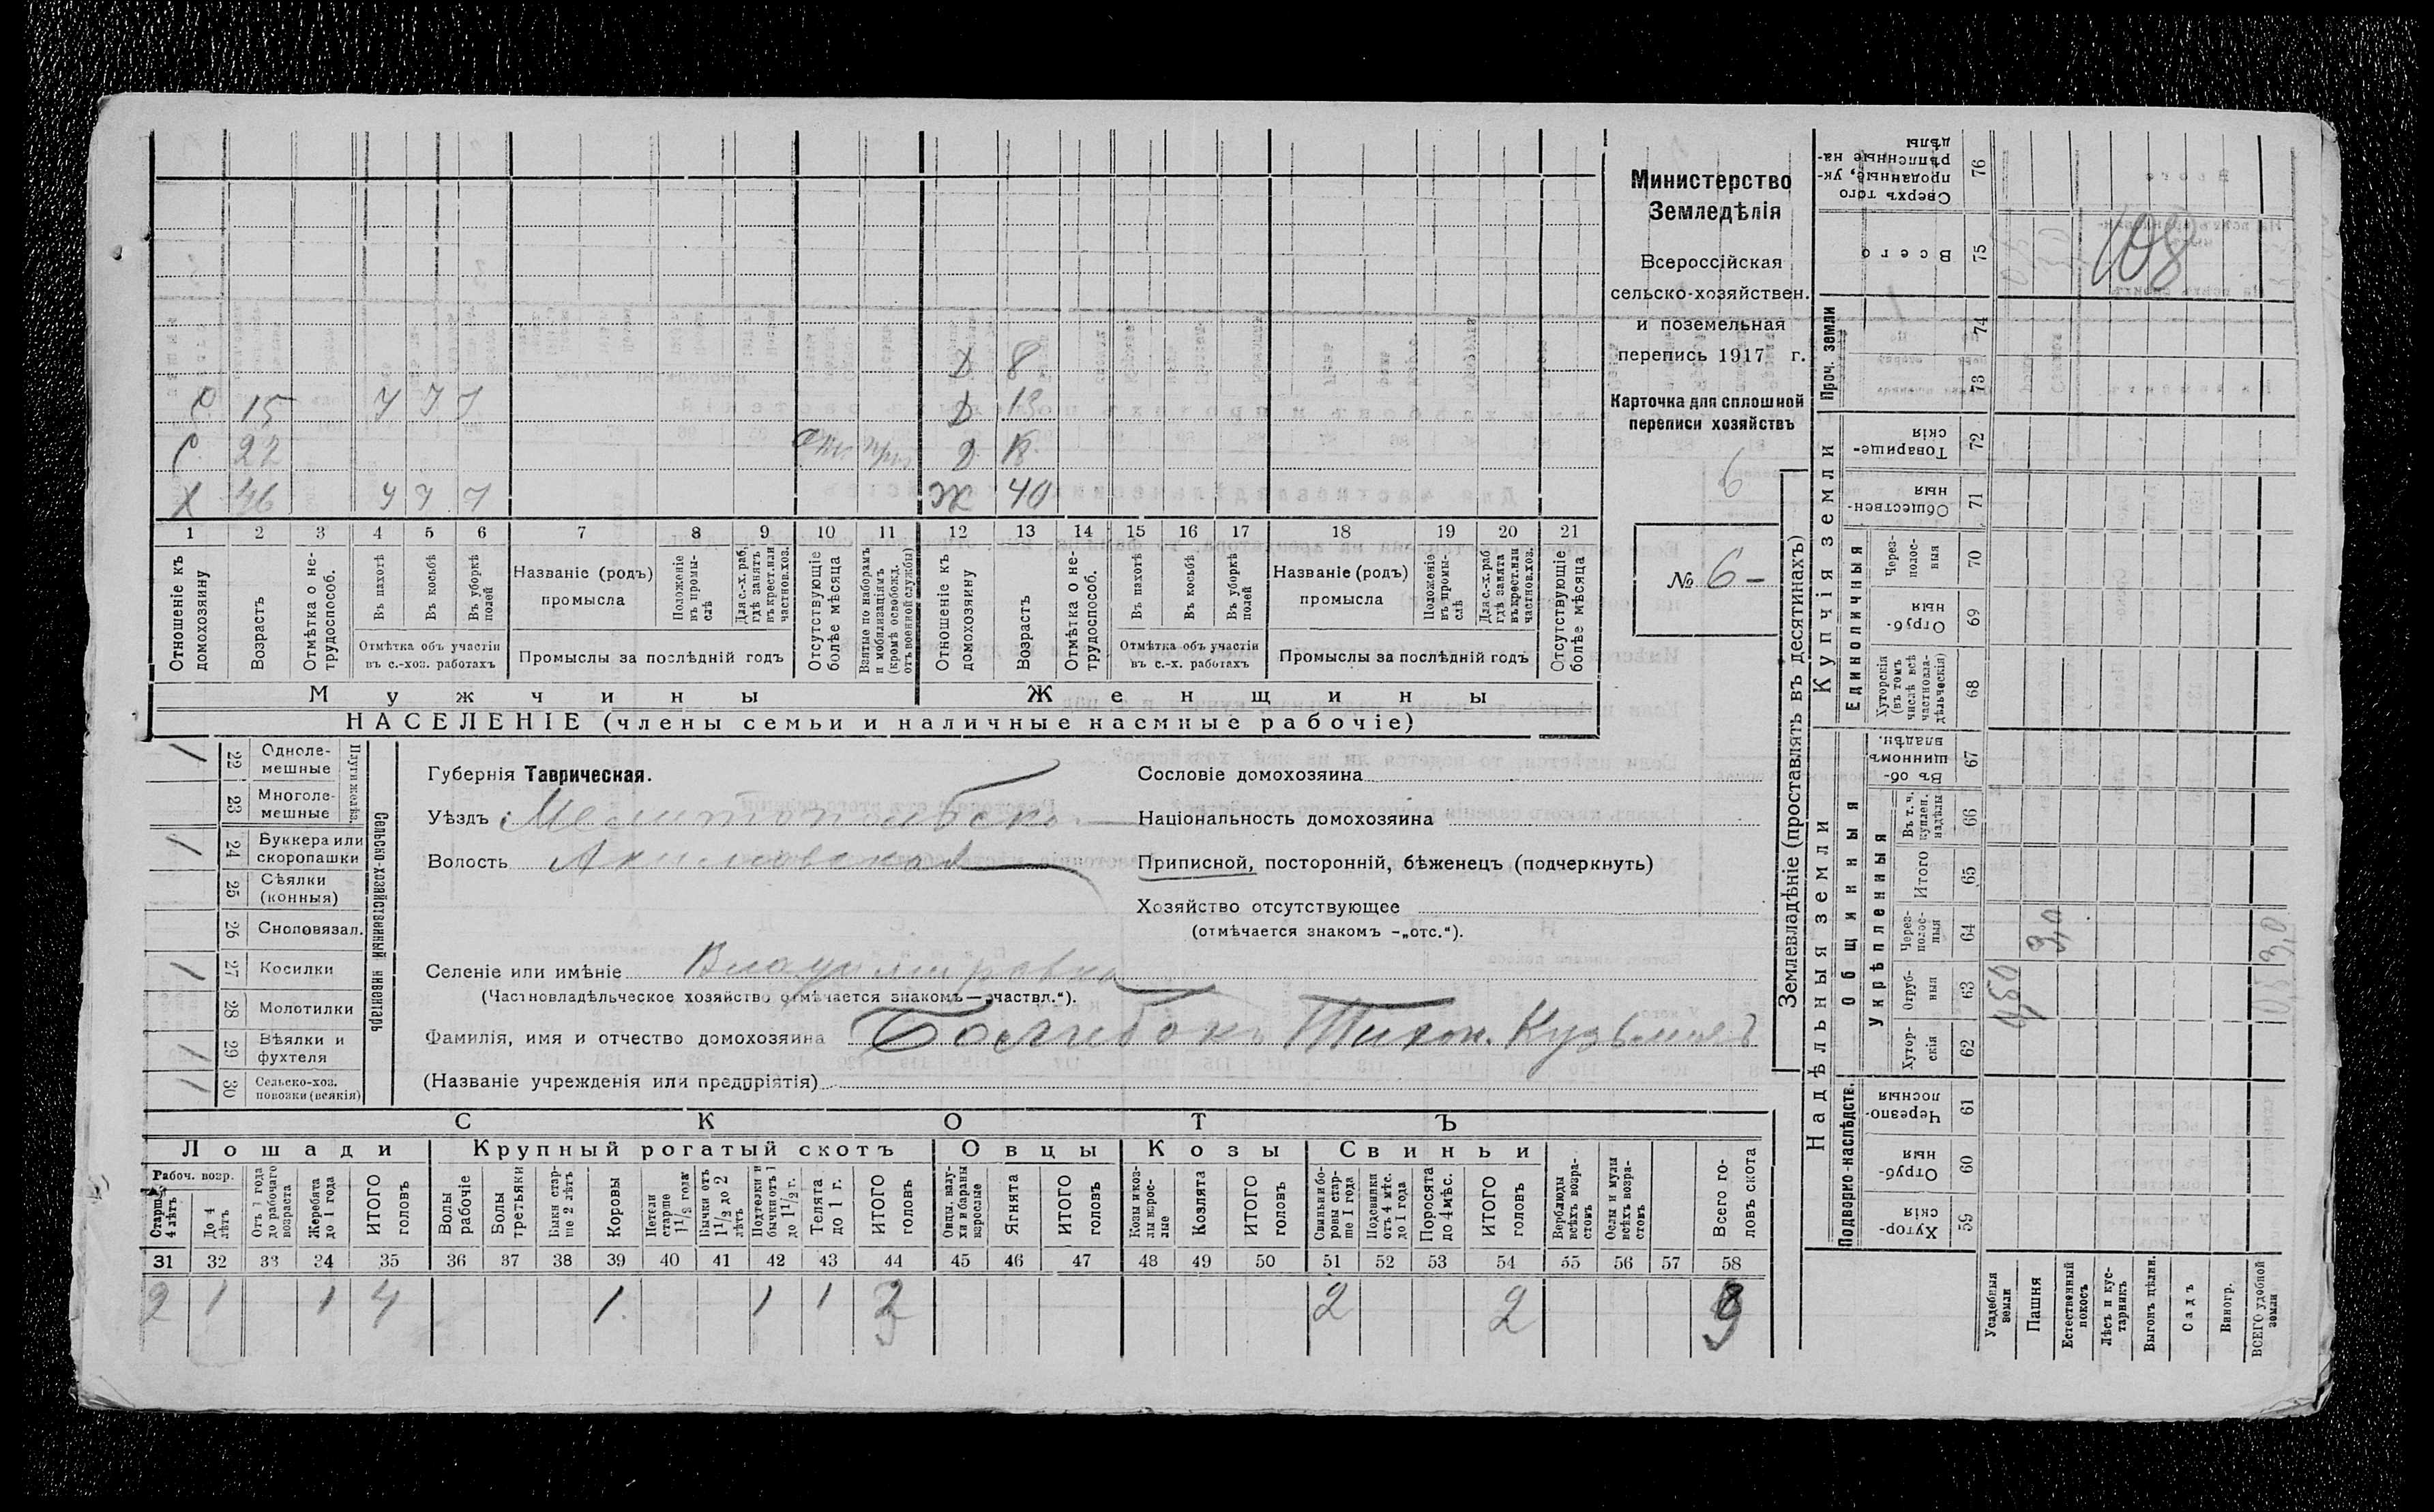 Министерство
Земледѣлія
Всероссійская
сельско-хозяйствен.
и поземельная
перепись 1917 г.
Карточка для сплошной
переписи хозяйствъ
6
№ 6 –
Д 8
С 15 У У У Д 13
С 22
Х 46 У У У Ж 40
1 2 3 4 5 6 7 8 9 10 11 12 13 14 15 16 17 18 19 20 21
Отношеніе къ домохозяину
Возрастъ
Отмѣтка о не-трудоспособ.
Въ пахотѣ
Въ косьбѣ
Въ уборкѣ полей
Отмѣтка объ участіи въ с.-хоз. работахъ
Названіе (родъ) промысла
Положеніе въ промы-слѣ
Для с.-х. раб. гдѣ занятъ въ крест. или частнов. хоз.
Промыслы за послѣдній годъ
Отсутствующіе болѣе мѣсяца
Взятые по наборамъ и мобилизаціямъ (кромѣ освобожд. отъ военной службы)
Отношеніе къ домохозяину
Возрастъ
Отмѣтка о не-трудоспособ.
Въ пахотѣ
Въ косьбѣ
Въ уборкѣ полей
Отмѣтка объ участіи въ с.-х. работахъ
Названіе (родъ) промысла
Положеніе въ промы-слѣ
Для с.-х. раб. гдѣ занята въ крест. или частнов. хоз.
Промыслы за послѣдній годъ
Отсутствующіе болѣе мѣсяца
Мужчины Женщины
НАСЕЛЕНІЕ (члены семьи и наличные наемные рабочіе)
Сельско-хозяйственный инвентарь
1 22 Одноле-мешные
23 Многоле-мешные
1 24 Буккера или скоропашки
25 Сѣялки (конныя)
26 Сноповязал.
1 27 Косилки
28 Молотилки
1 29 Вѣялки и фухтеля
1 30 Сельско-хоз. повозки (всякія)
Губернія Таврическая.
Уѣздъ Мелитопольскій
Волость Акимовская
Селеніе или имѣніе Владимировка
(Частновладѣльческое хозяйство отмѣчается знакомъ — „частвл.“).
Фамилія, имя и отчество домохозяина Тихон. Кузьмичъ
(Названіе учрежденія или предпріятія)
Сословіе домохозяина
Національность домохозяина
Приписной, посторонній, бѣженецъ (подчеркнуть)
Хозяйство отсутствующее
(отмѣчается знакомъ -„отс.“).
СКОТЪ
Лошади Крупный рогатый скотъ Овцы Козы Свиньи
Рабоч. возр.
Старше 4 лѣтъ
До 4 лѣтъ
Отъ 1 года до рабочаго возраста
Жеребята до 1 года
ИТОГО головъ
Волы рабочіе
Волы третьяки
Быки стар-ше 2 лѣтъ
Коровы
Нетели старше 1 1/2 года
Бычки отъ 1 1/2 до 2 лѣтъ
Подтелки и бычки отъ 1 до 1 1/2 г.
Телята до 1 г.
ИТОГО головъ
Овцы, валу-хи и бараны взрослые
Ягнята
ИТОГО головъ
Козы и коз-лы взрос-лые
Козлята
ИТОГО головъ
Свиньи и бо-ровы стар-ше 1 года
Подсвинки отъ 4 мѣс. до 1 года
Поросята до 4 мѣс.
ИТОГО головъ
Верблюды всѣхъ возра-стовъ
Ослы и мулы всѣхъ возра-стовъ
Всего го-ловъ скота
31 32 33 34 35 36 37 38 39 40 41 42 43 44 45 46 47 48 49 50 51 52 53 54 55 56 57 58
2 1 1 4 1 1 1 3 2 2 9
Землевладѣніе (проставлять въ десятинахъ)
Надѣльныя земли Купчія земли Проч. земли
Подворно-наслѣдств.
Общинныя
Укрѣпленныя
Единоличныя
Хутор-скія 59
Отруб-ныя 60
Черезпо-лосныя 61
Хутор-скія 62
Отруб-ныя 63
Через-полос-ныя 64
Итого 65
Въ т. ч. куплен. надѣлы 66
Въ об-щинномъ владѣн. 67
Хуторскія (въ томъ числѣ всѣ частновла-дѣльческія) 68
Отруб-ныя 69
Через-полос-ныя 70
Обществен-ныя 71
Товарище-скія 72
73
74
Всего 75
Сверхъ того проданные, ук-рѣпленные на-дѣлы 76
Усадебныя земли
Пашня 3,0
Естественный покосъ
Лѣсъ и кус-тарникъ
Выгонъ цѣлин.
Садъ
Виногр.
ВСЕГО удобной земли
108